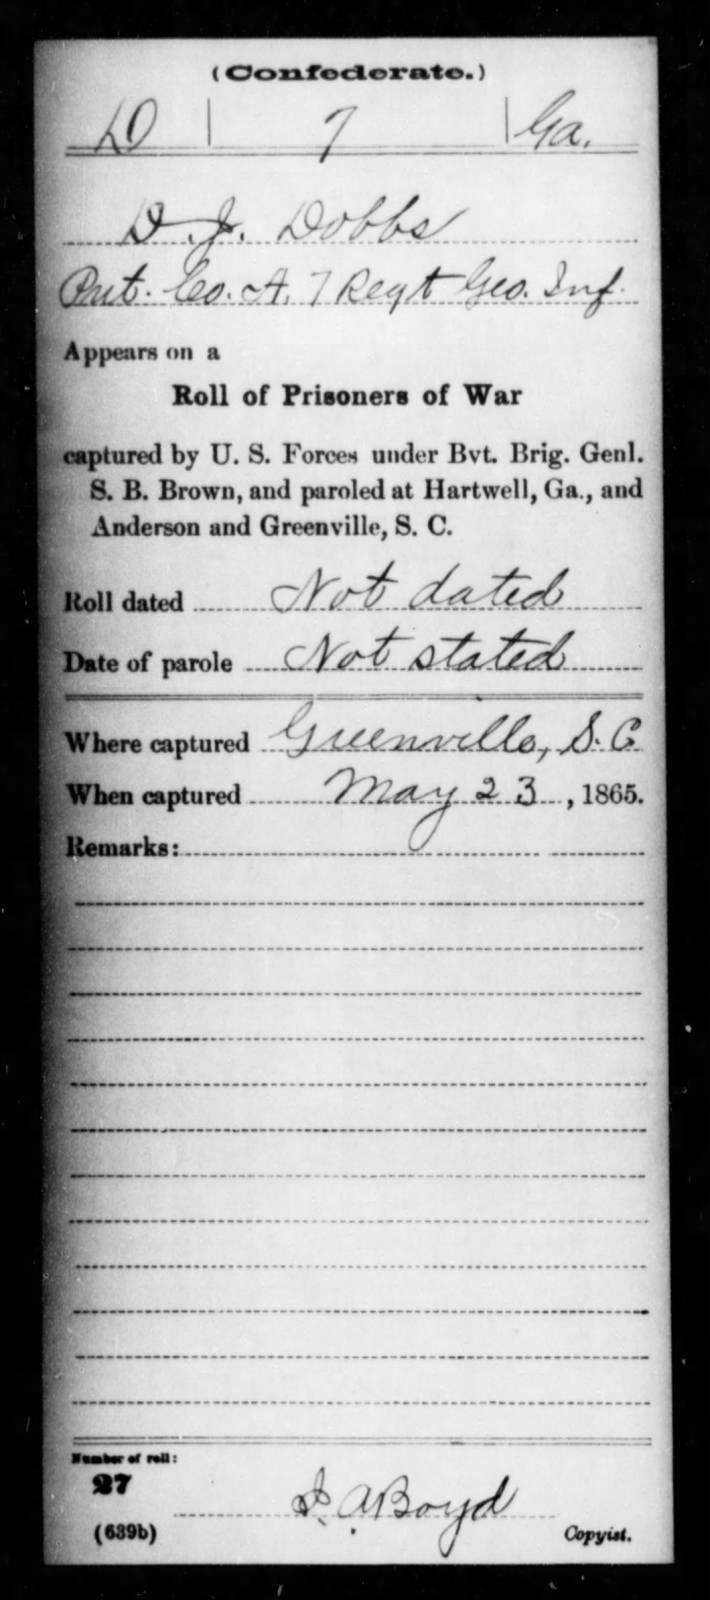 (Confederate.)
D | 7 | Ga.
D. J. Dobbs
Pvt. Co. A. 7 Regt Geo. Inf.
Appears on a
Roll of Prisoners of War
captured by U. S. Forces under Bvt. Brig. Genl.
S. B. Brown, and paroled at Hartwell, Ga., and
Anderson and Greenville, S. C.
Roll dated Not dated
Date of parole Not stated
Where captured Greenville, S. C.
When captured May 23, 1865.
Remarks:
Number of roll:
27
A Boyd
(639b) Copyist.